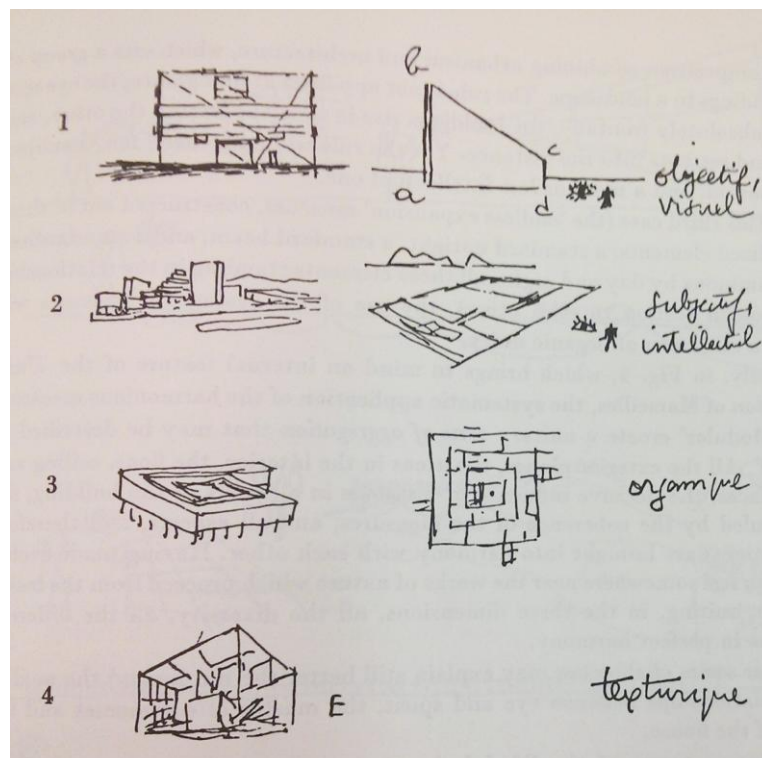 b
1
c
a
d
objectif,
visuel
2
subjectif,
intellectuel
3
organique
4
E
texturique